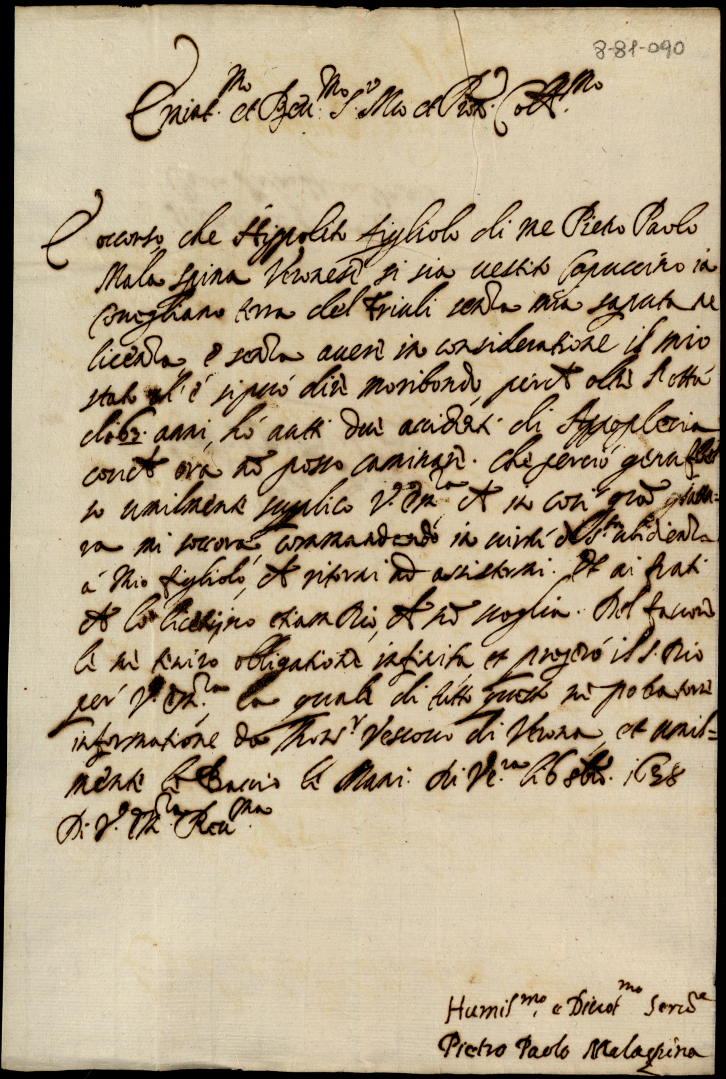 8-81-090
Emin.mo et Reu.mo S.r Mio et Pron. Col.mo
E occorso che Hippolito figliolo di me Pietro Paolo
Mala spina Veronese si sia uestito Capuccino in
Conegliano terra del Friuli senza mia saputa ne
licenza e senza auere in consideratione il mio
stato ch'è si può dire moribondo perch oltre l'età
di 62. anni, hò auuti due accidenti di Appoplesia
ora nō posso caminare. Che perciò genufles
so umilmente supplico V. Em.za ch in
ra mi soccora commandando in uirtù di S.ta ubidienza
à mio figliolo, ch ritorni ad assistermi. Et ai frati
ch lo licentijno etiam Dio, ch nō uoglia. Del fauore
le ne tenirò obligatione infinita et pregerò il S. Dio
per V. Em.za la quale di tutto questo ne potra
informatione da Mons.r Vescouo di Verona, et umil=
mente le Baccio le Mani. di Ve.ra li 6 8bre. 1638
Di V. Em.za Reu.ma
Humil.mo e Diuot.mo Ser.
Pietro Paolo Malaspina